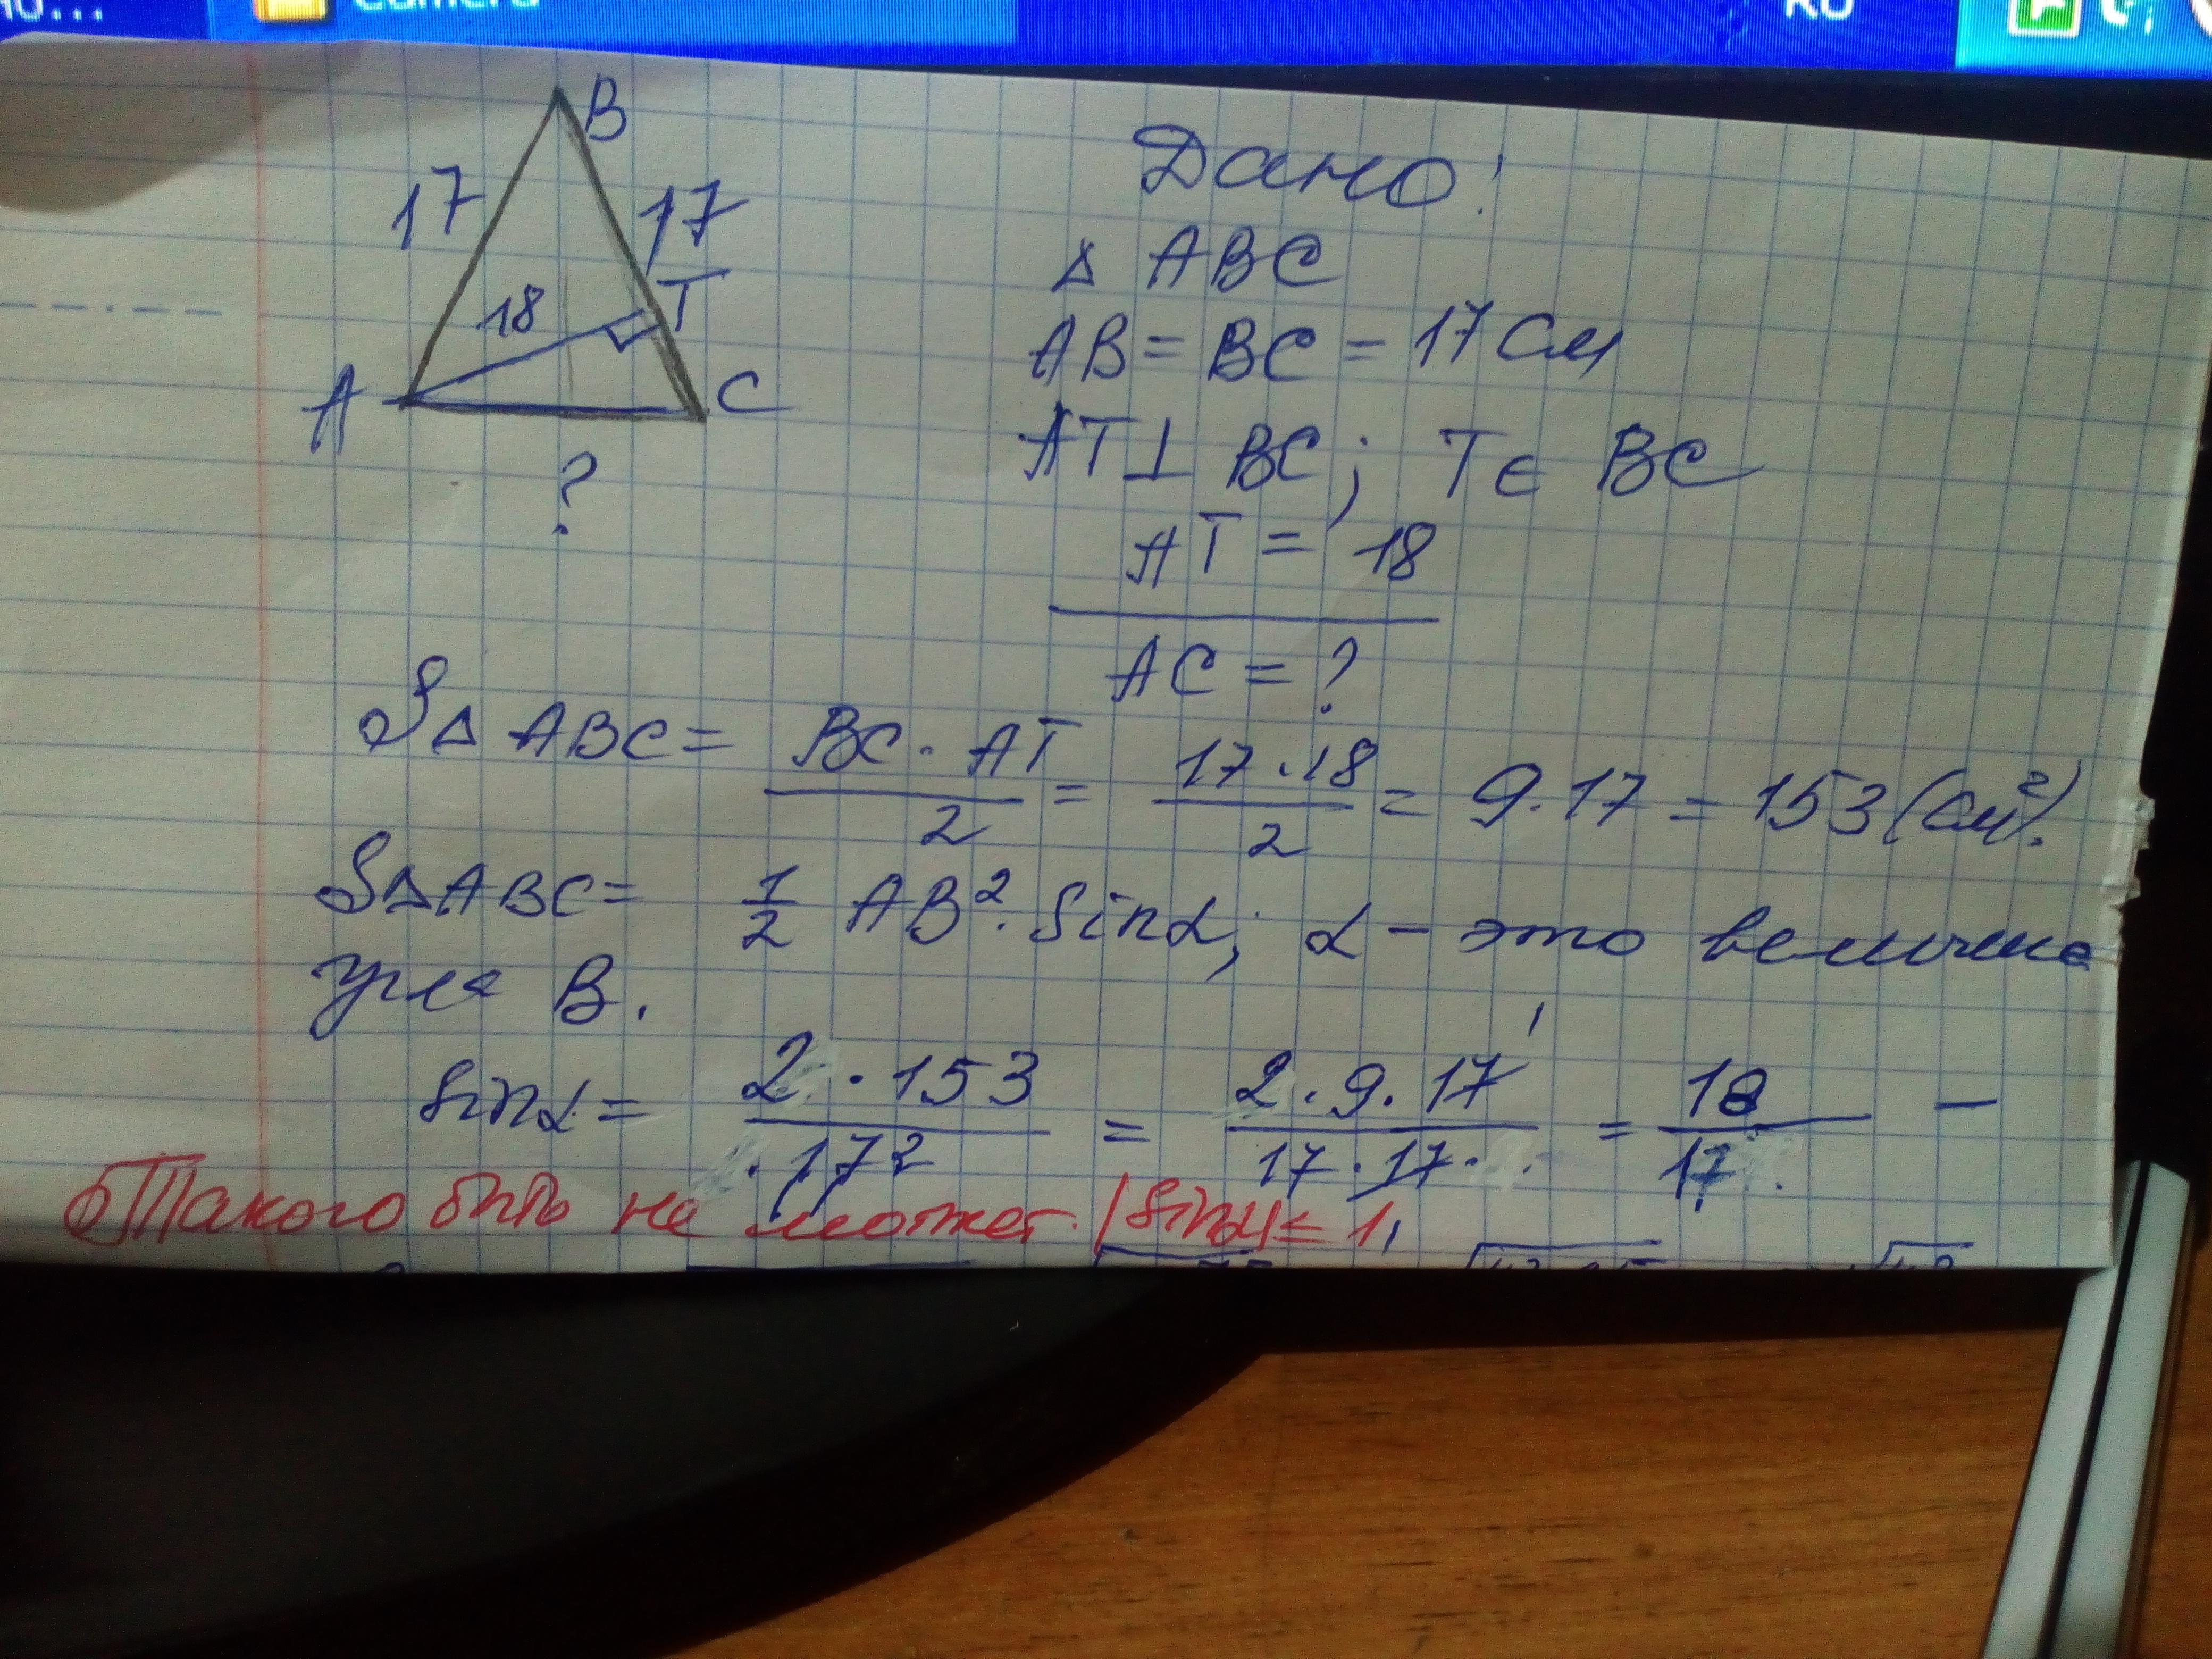 Camera
RU
B
17
17
18
T
A
C
?
Дано:
Δ ABC
AB = BC = 17 см
AT ⊥ BC; T ∈ BC
AT = 18
AC = ?
SΔ ABC = BC · AT / 2 = 17 · 18 / 2 = 9 · 17 = 153 (см²).
SΔABC = 1/2 AB² · Sin α; α – это величина
угла B.
Sin α = 2 · 153 / 17² = 2 · 9 · 17 / 17 · 17 = 18 / 17 –
Такого быть не может. |Sin α| ≤ 1,